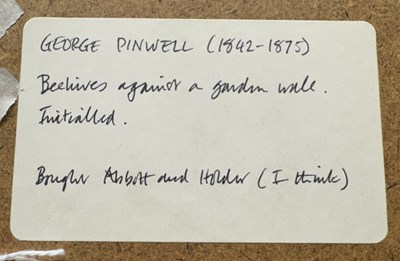 GEORGE PINWELL (1842-1875)
Beehives against a garden wall.
Initialled.
Bought Abbott and Holder (I think)